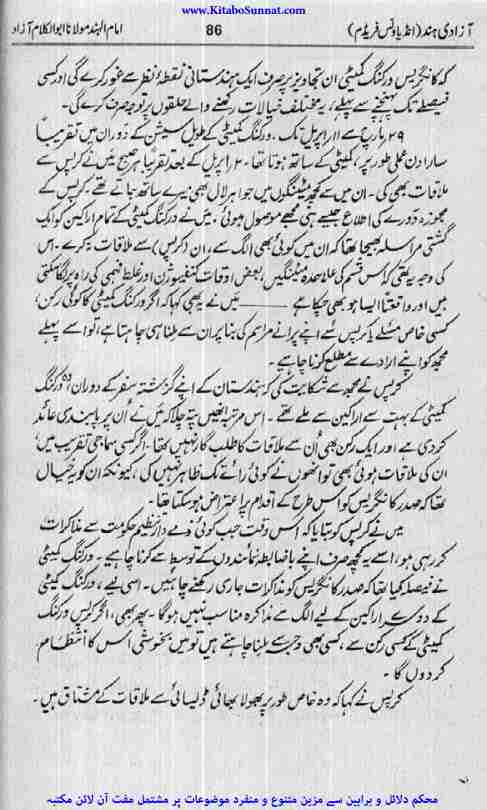 www.KitaboSunnat.com
آزادی ہند (انڈیا ونس فریڈم)
86
امام الہند مولانا ابوالکلام آزاد
کہ کانگریس ورکنگ کمیٹی ان تجاویز پر صرف ایک ہندستانی نقطۂ نظر سے غور کرے گی اور کسی
فیصلے تک پہنچنے سے پہلے، یہ مختلف خیالات رکھنے والے حلقوں پر توجہ صرف کرے گی۔
۲۹ مارچ سے ۱۱ اپریل تک۔ ورکنگ کمیٹی کے طویل سیشن کے دوران میں تقریباً
سارا دن عملی طور پر، کمیٹی کے ساتھ ہوتا تھا۔ ۲ اپریل کے بعد تقریباً ہر صبح میں نے کرپس سے
ملاقات بھی کی۔ ان میں سے کچھ میٹنگوں میں جواہر لال بھی میرے ساتھ جاتے تھے۔ کرپس کے
مجوزہ دورے کی اطلاع جیسے ہی مجھے موصول ہوئی، میں نے ورکنگ کمیٹی کے تمام اراکین کو ایک
گشتی مراسلہ بھیجا تھا کہ ان میں کوئی بھی الگ سے، ان (کرپس) سے ملاقات نہ کرے۔ اس
کی وجہ یہ تھی کہ اس قسم کی علاحدہ میٹنگیں، بعض اوقات کنفیوژن اور غلط فہمی کی راہ پر لگا سکتی
ہیں اور واقعتاً ایسا ہو بھی چکا ہے ——— میں نے یہ بھی کہا کہ اگر ورکنگ کمیٹی کا کوئی رکن،
کسی خاص مسئلے یا کرپس سے اپنے پرانے مراسم کی بنا پر ان سے ملنا ہی چاہتا ہے، تو اسے پہلے
مجھ کو اپنے ارادے سے مطلع کرنا چاہیے۔
کرپس نے مجھ سے شکایت کی کہ ہندستان کے اپنے گزشتہ سفر کے دوران، وہ ورکنگ
کمیٹی کے بہت سے اراکین سے ملے تھے۔ اس مرتبہ انھیں پتہ چلا کہ میں نے اُن پر پابندی عائد
کر دی ہے اور ایک رکن بھی اُن سے ملاقات کا طلب گار نہیں تھا۔ اگر کسی سماجی تقریب میں،
ان کی ملاقات ہوئی بھی تو انھوں نے کوئی رائے تک ظاہر نہیں کی، کیونکہ ان کو خیال
تھا کہ صدر کانگریس کو اس طرح کے اقدام پر اعتراض ہو سکتا تھا۔
میں نے کرپس کو بتایا کہ اس وقت جب کوئی ذمے دار تنظیم حکومت سے مذاکرات
کر رہی ہو، اسے یہ کچھ صرف اپنے باضابطہ نمائندوں کے توسط سے کرنا چاہیے۔ ورکنگ کمیٹی
نے فیصلہ کیا تھا کہ صدر کانگریس کو مذاکرات جاری رکھنے چاہئیں۔ اسی لیے، ورکنگ کمیٹی
کے دوسرے اراکین کے لیے الگ سے مذاکرہ مناسب نہیں ہوگا۔ پھر بھی، اگر کرپس ورکنگ
کمیٹی کے کسی رکن سے، کسی بھی وجہ سے ملنا چاہتے ہیں تو میں بخوشی اس کا انتظام
کر دوں گا۔
کرپس نے کہا کہ وہ خاص طور پر بھولا بھائی ڈیسائی سے ملاقات کے مشتاق ہیں۔
محکم دلائل و براہین سے مزین متنوع و منفرد موضوعات پر مشتمل مفت آن لائن مکتبہ